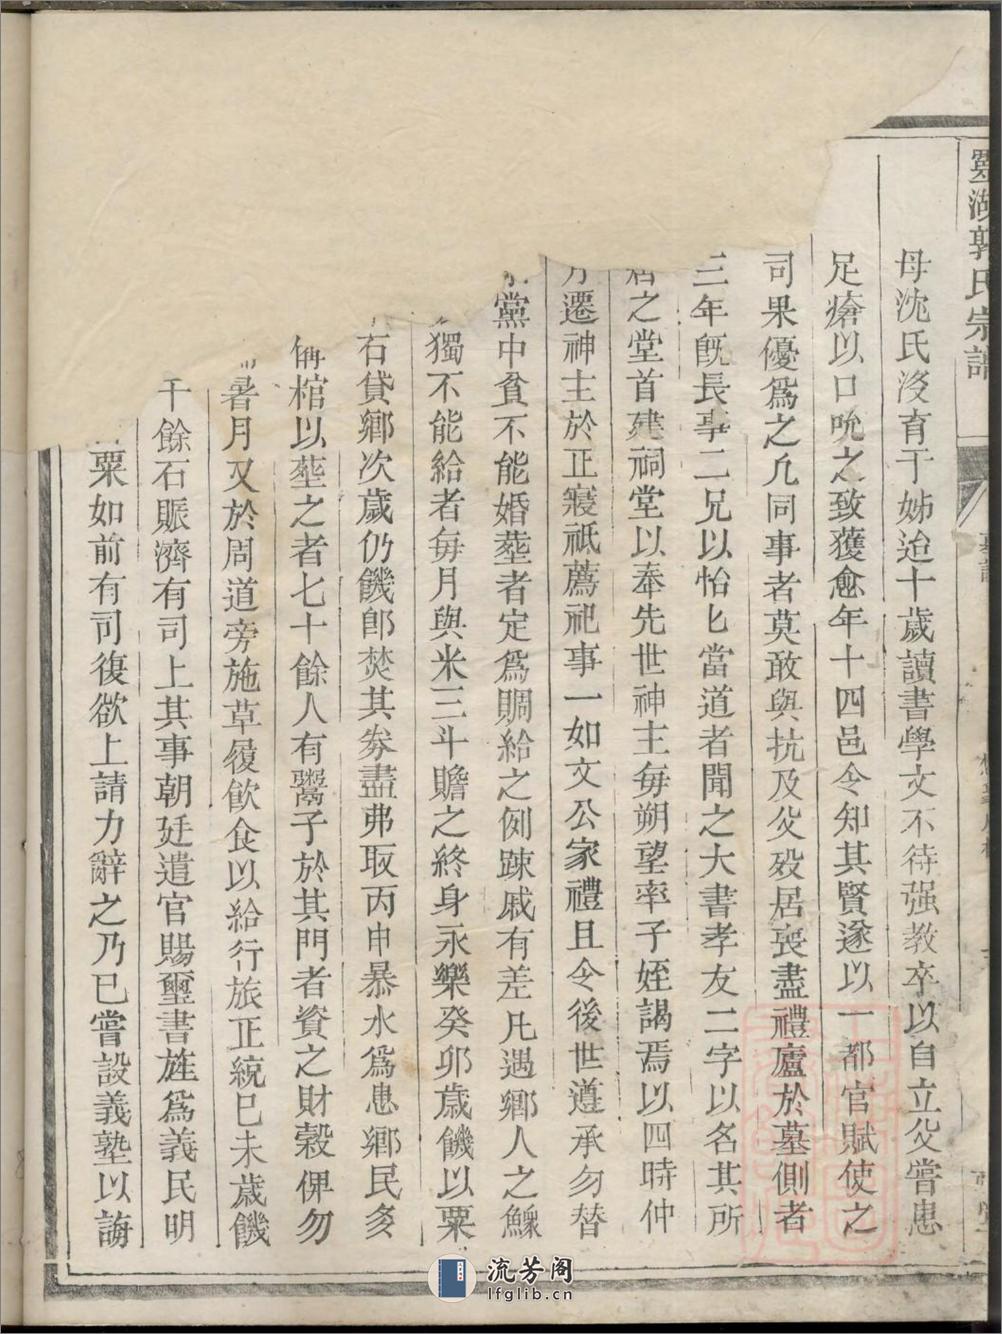 湖郭氏宗譜
母沈氏沒育于姊迨十歲讀書學文不待强教卒以自立父嘗患
足瘡以口吮之致獲愈年十四邑令知其賢遂以一都官賦使之
司果優爲之凢同事者莫敢與抗及父歿居喪盡禮廬於墓側者
三年旣長事二兄以怡匕當道者聞之大書孝友二字以名其所
居之堂首建祠堂以奉先世神主每朔望率子姪謁焉以四時仲
月遷神主於正寢祗薦祀事一如文公家禮且令後世遵承勿替
黨中貧不能婚塟者定爲賙給之例踈戚有差凡遇鄉人之鰥
獨不能給者每月與米三斗贍之終身永樂癸卯歲饑以粟
石貸鄉次歲仍饑卽焚其劵盡弗取丙申暴水爲患鄉民多
棺以塟之者七十餘人有鬻子於其門者資之財穀俾勿
暑月又於周道旁施草履飮食以給行旅正統巳未歲饑
千餘石賑濟有司上其事朝廷遣官賜璽書旌爲義民明
粟如前有司復欲上請力辭之乃已嘗設義塾以誨
流芳阁
lfglib.cn